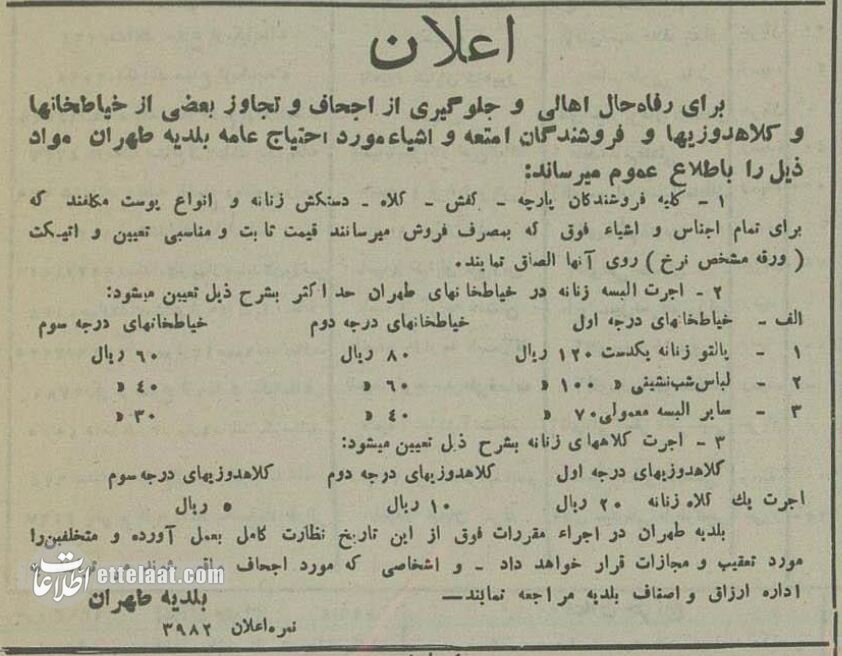 اعلان
برای رفاه‌حال اهالی و جلوگیری از اجحاف و تجاوز بعضی از خیاطخانها
و کلاهدوزیها و فروشندگان امتعه و اشیاء مورد احتیاج عامه بلدیه طهران مواد
ذیل را باطلاع عموم میرساند:
۱ - کلیه فروشندگان پارچه - کفش - کلاه - دستکش زنانه و انواع پوست مکلفند که
برای تمام اجناس و اشیاء فوق که بمصرف فروش میرسانند قیمت ثابت و مناسبی تعیین و اتیکت
( ورقه مشخص نرخ ) روی آنها الصاق نمایند.
۲ - اجرت البسه زنانه در خیاطخانهای طهران حد اکثر بشرح ذیل تعیین میشود:
الف - خیاطخانهای درجه اول خیاطخانهای درجه دوم خیاطخانهای درجه سوم
۱ - پالتو زنانه یکدست ۱۲۰ ریال ۸۰ ریال ۶۰ ریال
۲ - لباس شب‌نشینی « ۱۰۰ « ۶۰ « ۴۰ «
۳ - سایر البسه معمولی ۷۰ « ۴۰ « ۳۰ «
۳ - اجرت کلاههای زنانه بشرح ذیل تعیین میشود:
کلاهدوزیهای درجه اول کلاهدوزیهای درجه دوم کلاهدوزیهای درجه سوم
اجرت یك کلاه زنانه ۲۰ ریال ۱۰ ریال ۵ ریال
بلدیه طهران در اجراء مقررات فوق از این تاریخ نظارت کامل بعمل آورده و متخلفین را
مورد تعقیب و مجازات قرار خواهد داد - و اشخاصی که مورد اجحاف
اداره ارزاق و اصناف بلدیه مراجعه نمایند—
بلدیه طهران
نمره اعلان ۳۹۸۲
اطلاعات ettelaat.com